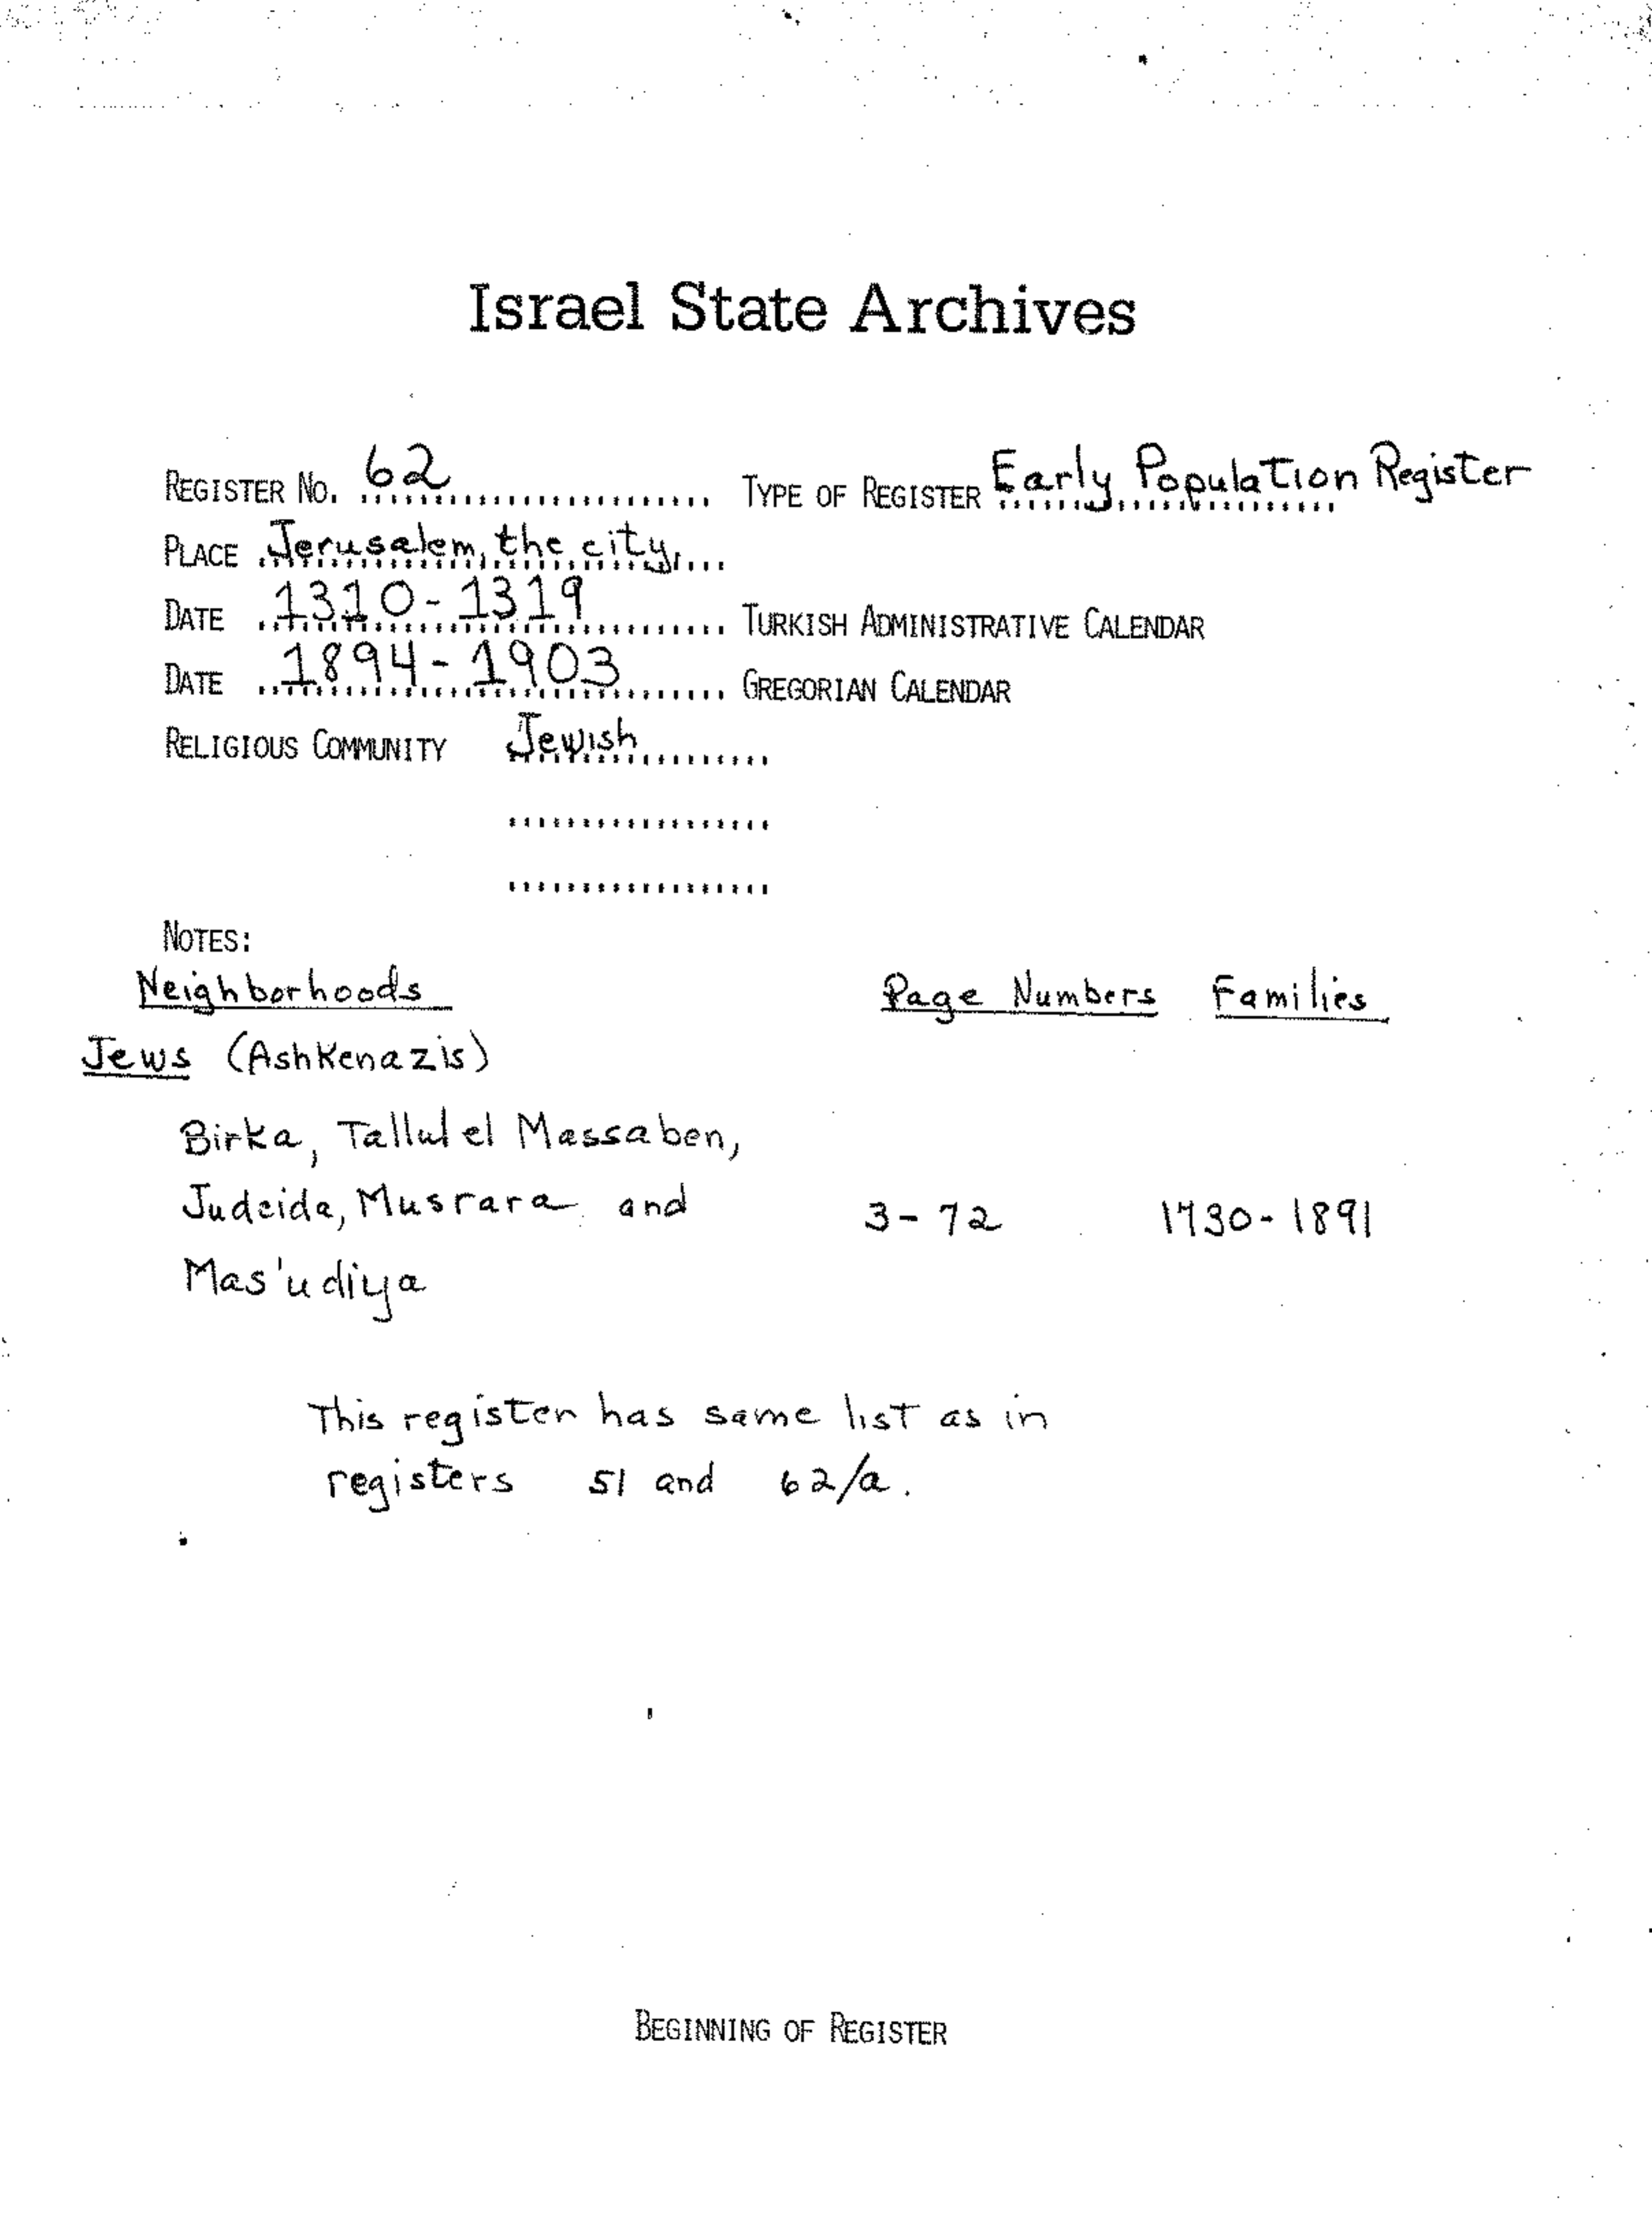 Israel State Archives
REGISTER NO. 62 TYPE OF REGISTER Early Population Register
PLACE Jerusalem, the city,
DATE 1310-1319 TURKISH ADMINISTRATIVE CALENDAR
DATE 1894-1903 GREGORIAN CALENDAR
RELIGIOUS COMMUNITY Jewish
NOTES:
Neighborhoods Page Numbers Families
Jews (Ashkenazis)
Birka, Tallul el Massaben,
Judeida, Musrara and 3-72 1730-1891
Mas'udiya
This register has same list as in
registers 51 and 62/a.
BEGINNING OF REGISTER